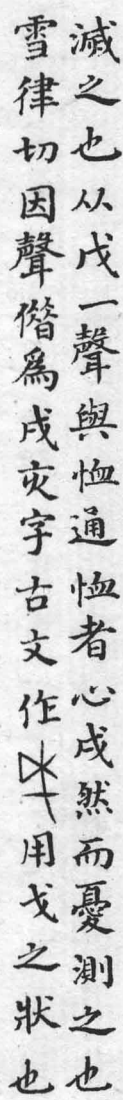 滅之也从戊一聲與恤通恤者心戌然而憂測之也
雪律切因聲僭爲戌亥字古文作用戈之狀也